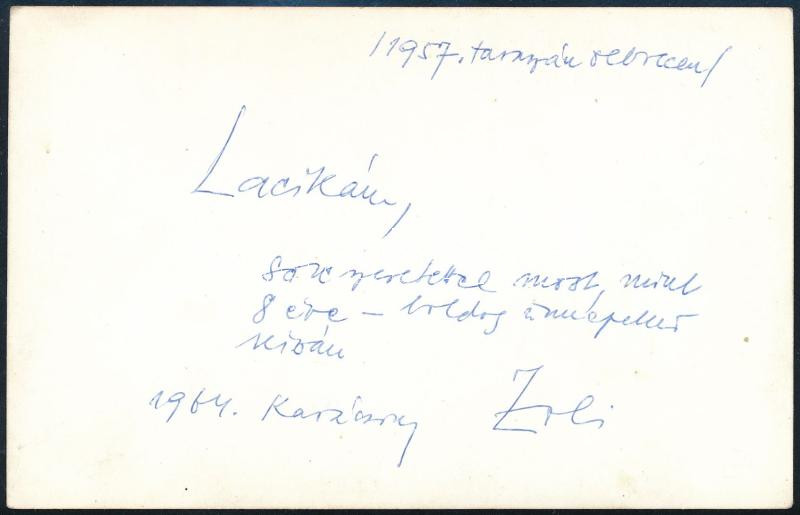 /1957. tavaszán Debrecen/
Lacikám,
sok szeretettel most, mint
8 éve – boldog ünnepeket
kíván
1964. Karácsony Zoli